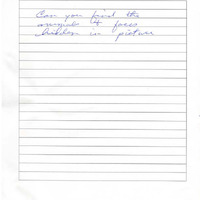 Can you find the
animals & faces
hidden in picture